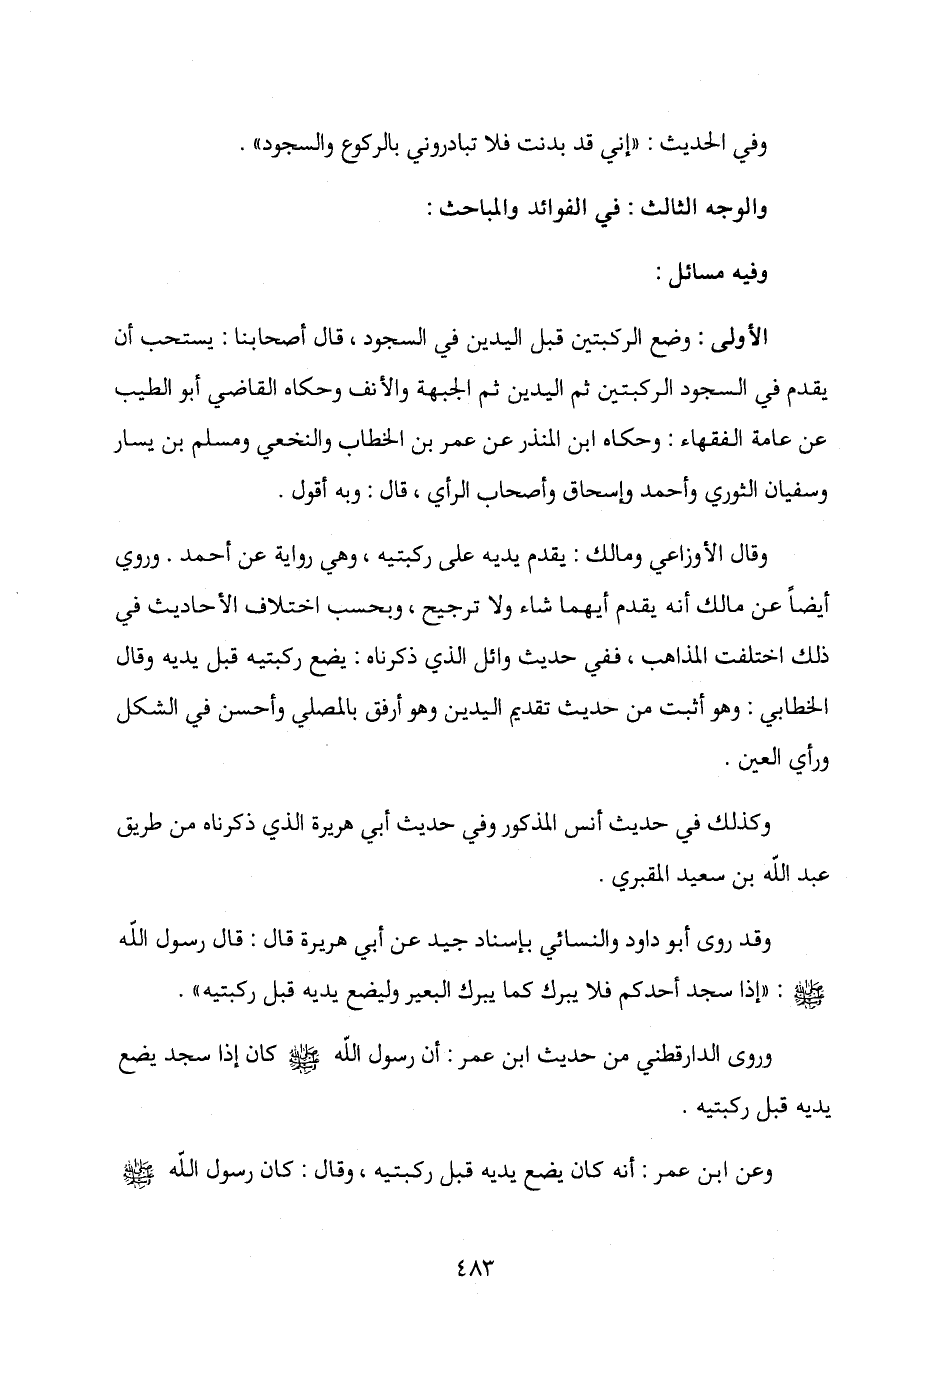 وفي الحديث : «إني قد بدنت فلا تبادروني بالركوع والسجود» .
والوجه الثالث : في الفوائد والمباحث :
وفيه مسائل :
الأولى : وضع الركبتين قبل اليدين في السجود ، قال أصحابنا : يستحب أن
يقدم في السجود الركبتين ثم اليدين ثم الجبهة والأنف وحكاه القاضي أبو الطيب
عن عامة الفقهاء : وحكاه ابن المنذر عن عمر بن الخطاب والنخعي ومسلم بن يسار
وسفيان الثوري وأحمد وإسحاق وأصحاب الرأي ، قال : وبه أقول .
وقال الأوزاعي ومالك : يقدم يديه على ركبتيه ، وهي رواية عن أحمد . وروي
أيضاً عن مالك أنه يقدم أيهما شاء ولا ترجيح ، وبحسب اختلاف الأحاديث في
ذلك اختلفت المذاهب ، ففي حديث وائل الذي ذكرناه : يضع ركبتيه قبل يديه وقال
الخطابي : وهو أثبت من حديث تقديم اليدين وهو أرفق بالمصلي وأحسن في الشكل
ورأي العين .
وكذلك في حديث أنس المذكور وفي حديث أبي هريرة الذي ذكرناه من طريق
عبد اللّه بن سعيد المقبري .
وقد روى أبو داود والنسائي بإسناد جيد عن أبي هريرة قال : قال رسول اللّه
ﷺ : «إذا سجد أحدكم فلا يبرك كما يبرك البعير وليضع يديه قبل ركبتيه» .
وروى الدارقطني من حديث ابن عمر : أن رسول اللّه ﷺ كان إذا سجد يضع
يديه قبل ركبتيه .
وعن ابن عمر : أنه كان يضع يديه قبل ركبتيه ، وقال : كان رسول اللّه ﷺ
٤٨٣